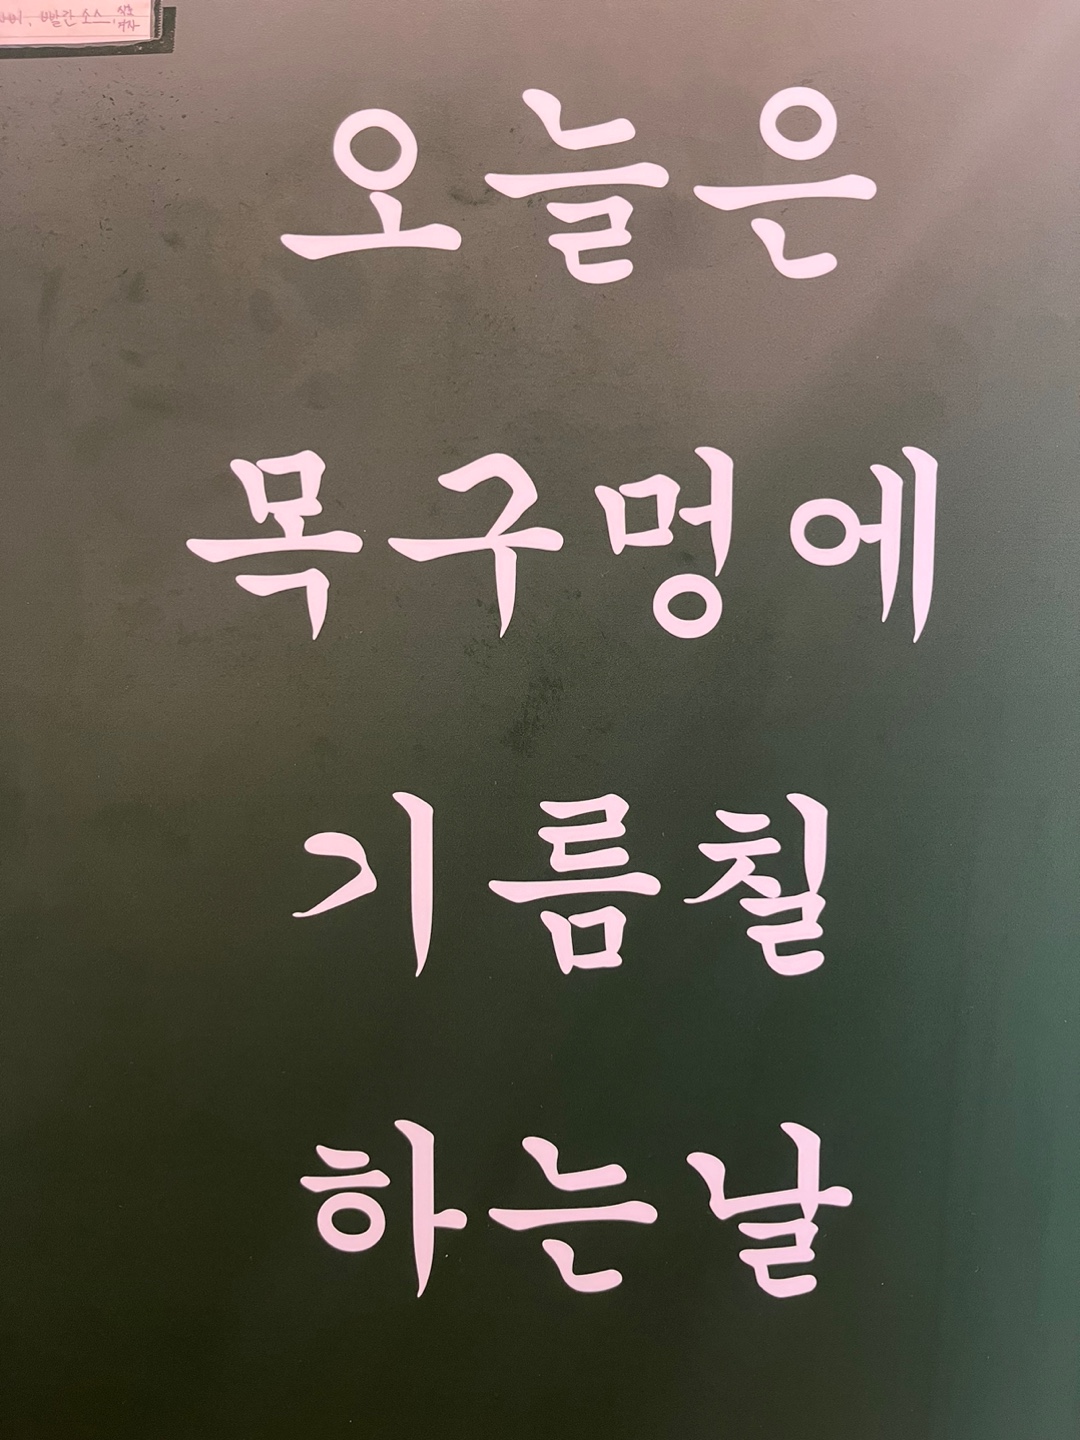 빨간소스,
오늘은
목구멍에
기름칠
하는날